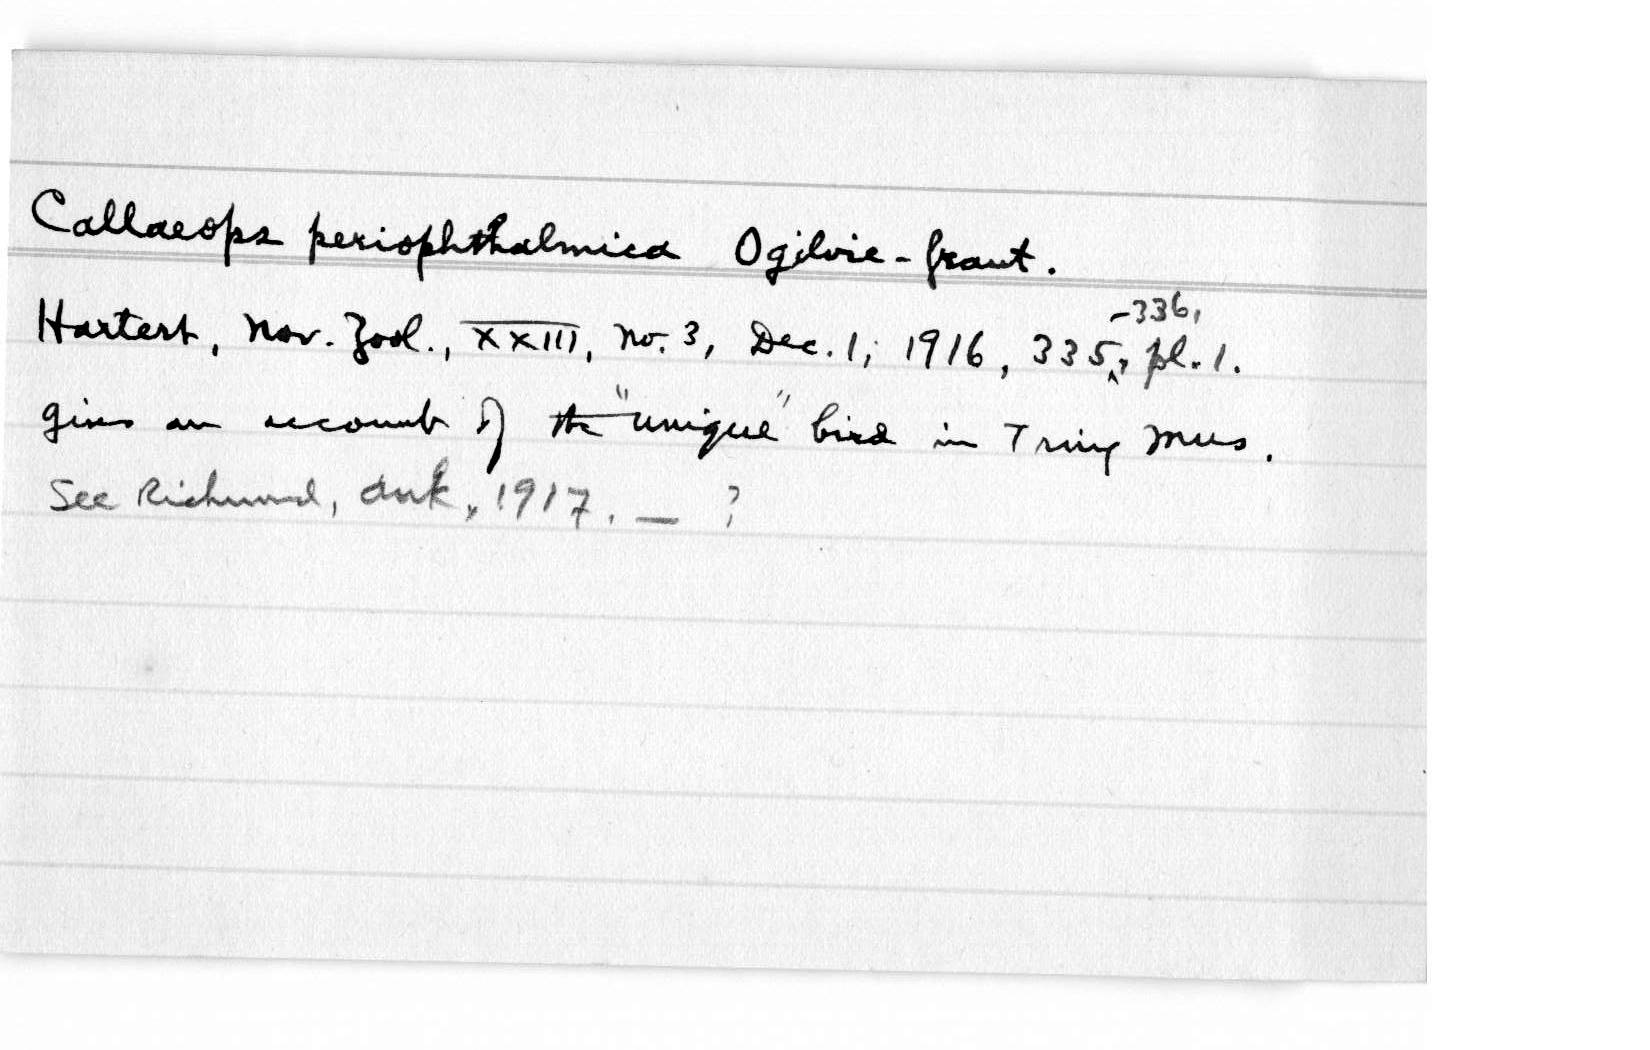 Callaeops periophthalmica Ogilvie-Grant.
Hartert, Nov. Zool., XXIII, no. 3, Dec. 1, 1916, 335-336, pl. 1.
gives an account of the "unique" bird in Tring Mus.
See Richmond, Auk, 1917. — ?